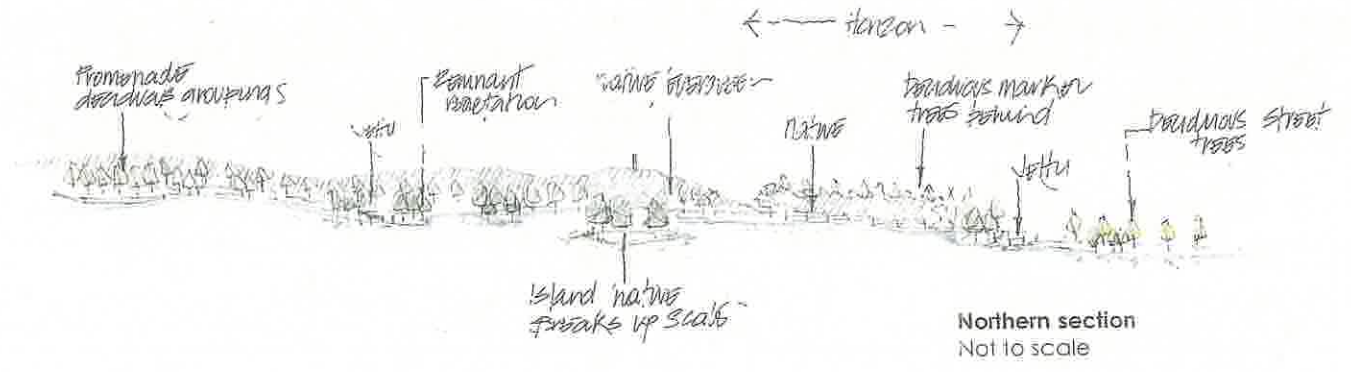 Horizon
Promenade
deciduous groupings
Remnant
vegetation
native evergreen
Deciduous marker
trees behind
Deciduous street
trees
Jetty
native
Jetty
Island native
Breaks up scale
Northern section
Not to scale